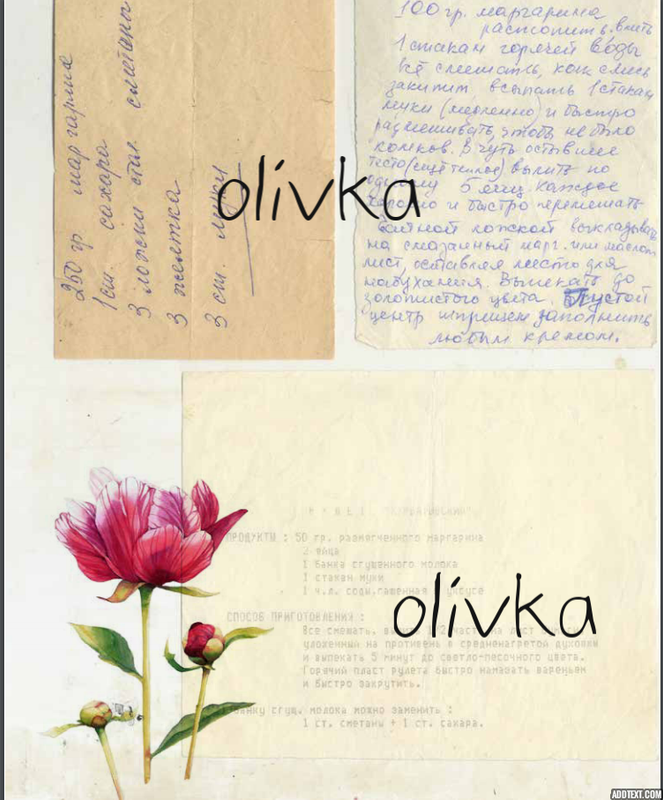 250 гр маргарина
1 ст. сахара
3 ложки стол. сметаны
3 желтка
3 ст. муки
100 гр. маргарина
растопить. влить
1 стакан горячей воды
всё смешать, как смесь
закипит всыпать 1 стакан
муки (медленно) и быстро
размешивать, чтобы не было
комков. В чуть остывшее
тесто (ещё теплое) вылить по
одному 5 яиц. Каждое
хорошо и быстро перемешать
ложкой выкладывать
на смазанный марг. или маслом
лист, оставляя место для
набухания. Выпекать до
золотистого цвета. Пустой
центр шприцем заполнить
любым кремом.
olivka
ПРОДУКТЫ : 50 гр. размягченного маргарина
2 яйца
1 банка сгущенного молока
1 стакан муки
1 ч.л. соды, гашенная уксусе
olivka
СПОСОБ ПРИГОТОВЛЕНИЯ :
Все смешать, 2 лист
уложенный на противень в средненагретой духовки
и выпекать 5 минут до светло-песочного цвета.
Горячий пласт рулета быстро намазать вареньем
и быстро закрутить.
Банку сгущ. молока можно заменить :
1 ст. сметаны + 1 ст. сахара.
ADDTEXT.COM